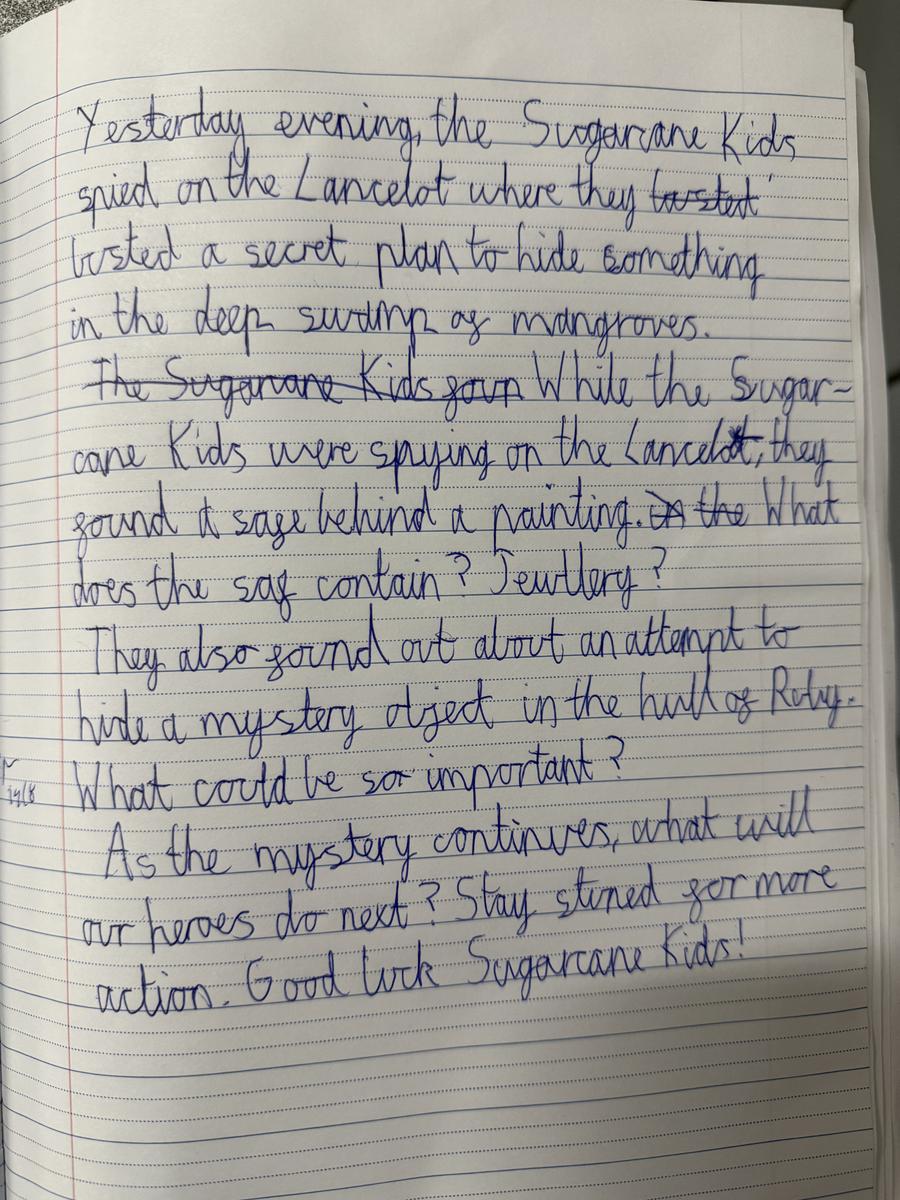 Yesterday evening, the Sugarcane Kids
spied on the Lancelot where they busted
busted a secret plan to hide something
in the deep swamp of mangroves.
The Sugarcane Kids foun While the Sugar-
cane Kids were spying on the Lancelot, they
found a safe behind a painting. in the What
does the saf contain? Jewllery?
They also found out about an attempt to
hide a mystery object in the hull of Ruby.
What could be so important?
As the mystery continues, what will
our heroes do next? Stay stuned for more
action. Good luck Sugarcane Kids!